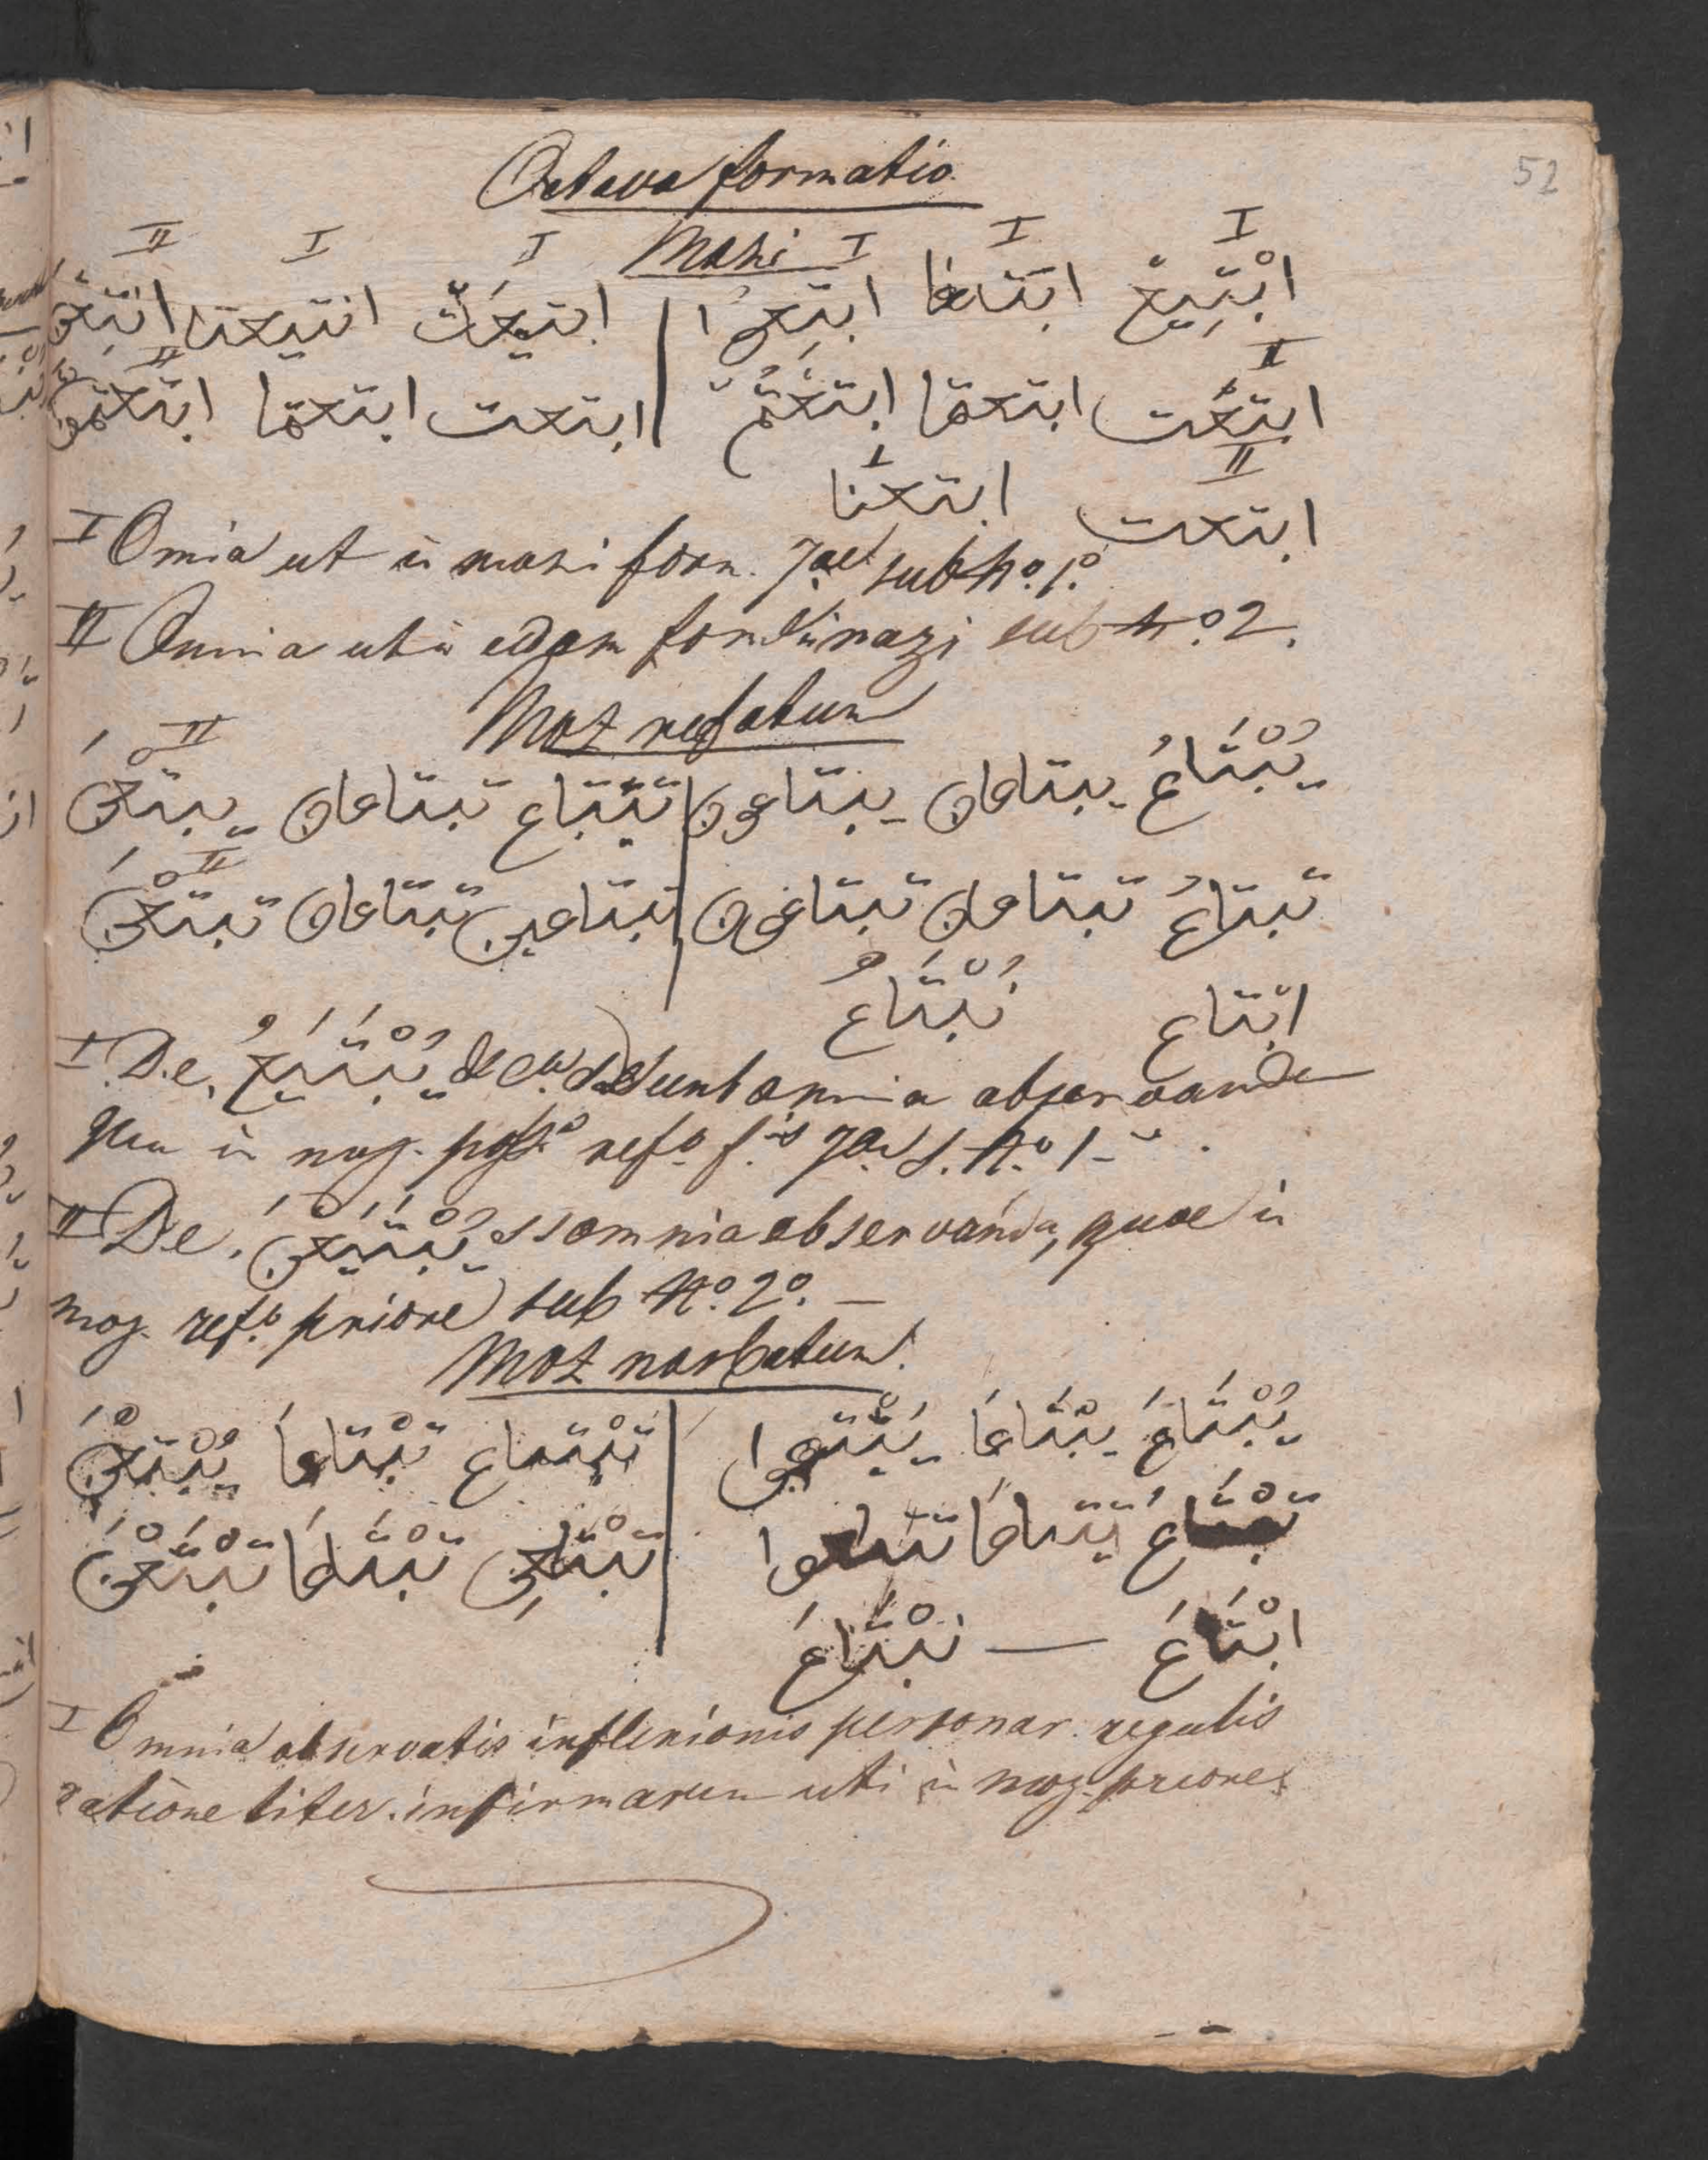 52
Octava formatio
Mazi
II I I I I I
ابْتِيعَ ابتعا ابتعوا | ابتيعت ابتيعتا ابتعن
II II
ابتعت ابتعتما ابتعتم | ابتعت ابتعتما ابتعتن
II I
ابتعت ابتعنا
I Omia ut in mazi form. 7ae sub No. 1o
II Omnia ut in eadem form. in mazi sub No 2.
Moz refatum
II
يُبْتَاعُ يبتاعان يبتاعون | تبتاع تبتاعان يبتعن
II
تبتاعُ تبتاعان تبتاعون | تبتاعين تبتاعان تبتعن
ابتاع نُبْتَاعُ
I De يُبْتَيَعُ sunt omnia observanda
quae in moz. refo f. 7ae s. No 1
II De يُبْتَيَعْنَ s omnia observanda, quae in
moz. refo priore sub No. 2o. —
Moz nasbatum
يُبْتَاعَ يبْتَاعَا يبتاعوا | تبْتاع تبْتاعَا يُبْتَعْنَ
تبْتَاعَ تبتاعَا تبتاعوا | تبْتاعي تبْتَاعَا تبْتَعْنَ
ابْتَاعَ — نبْتَاعَ
I Omnia observatis inflexionis personar. regulis
ratione liter. infirmarum uti in moz. priore